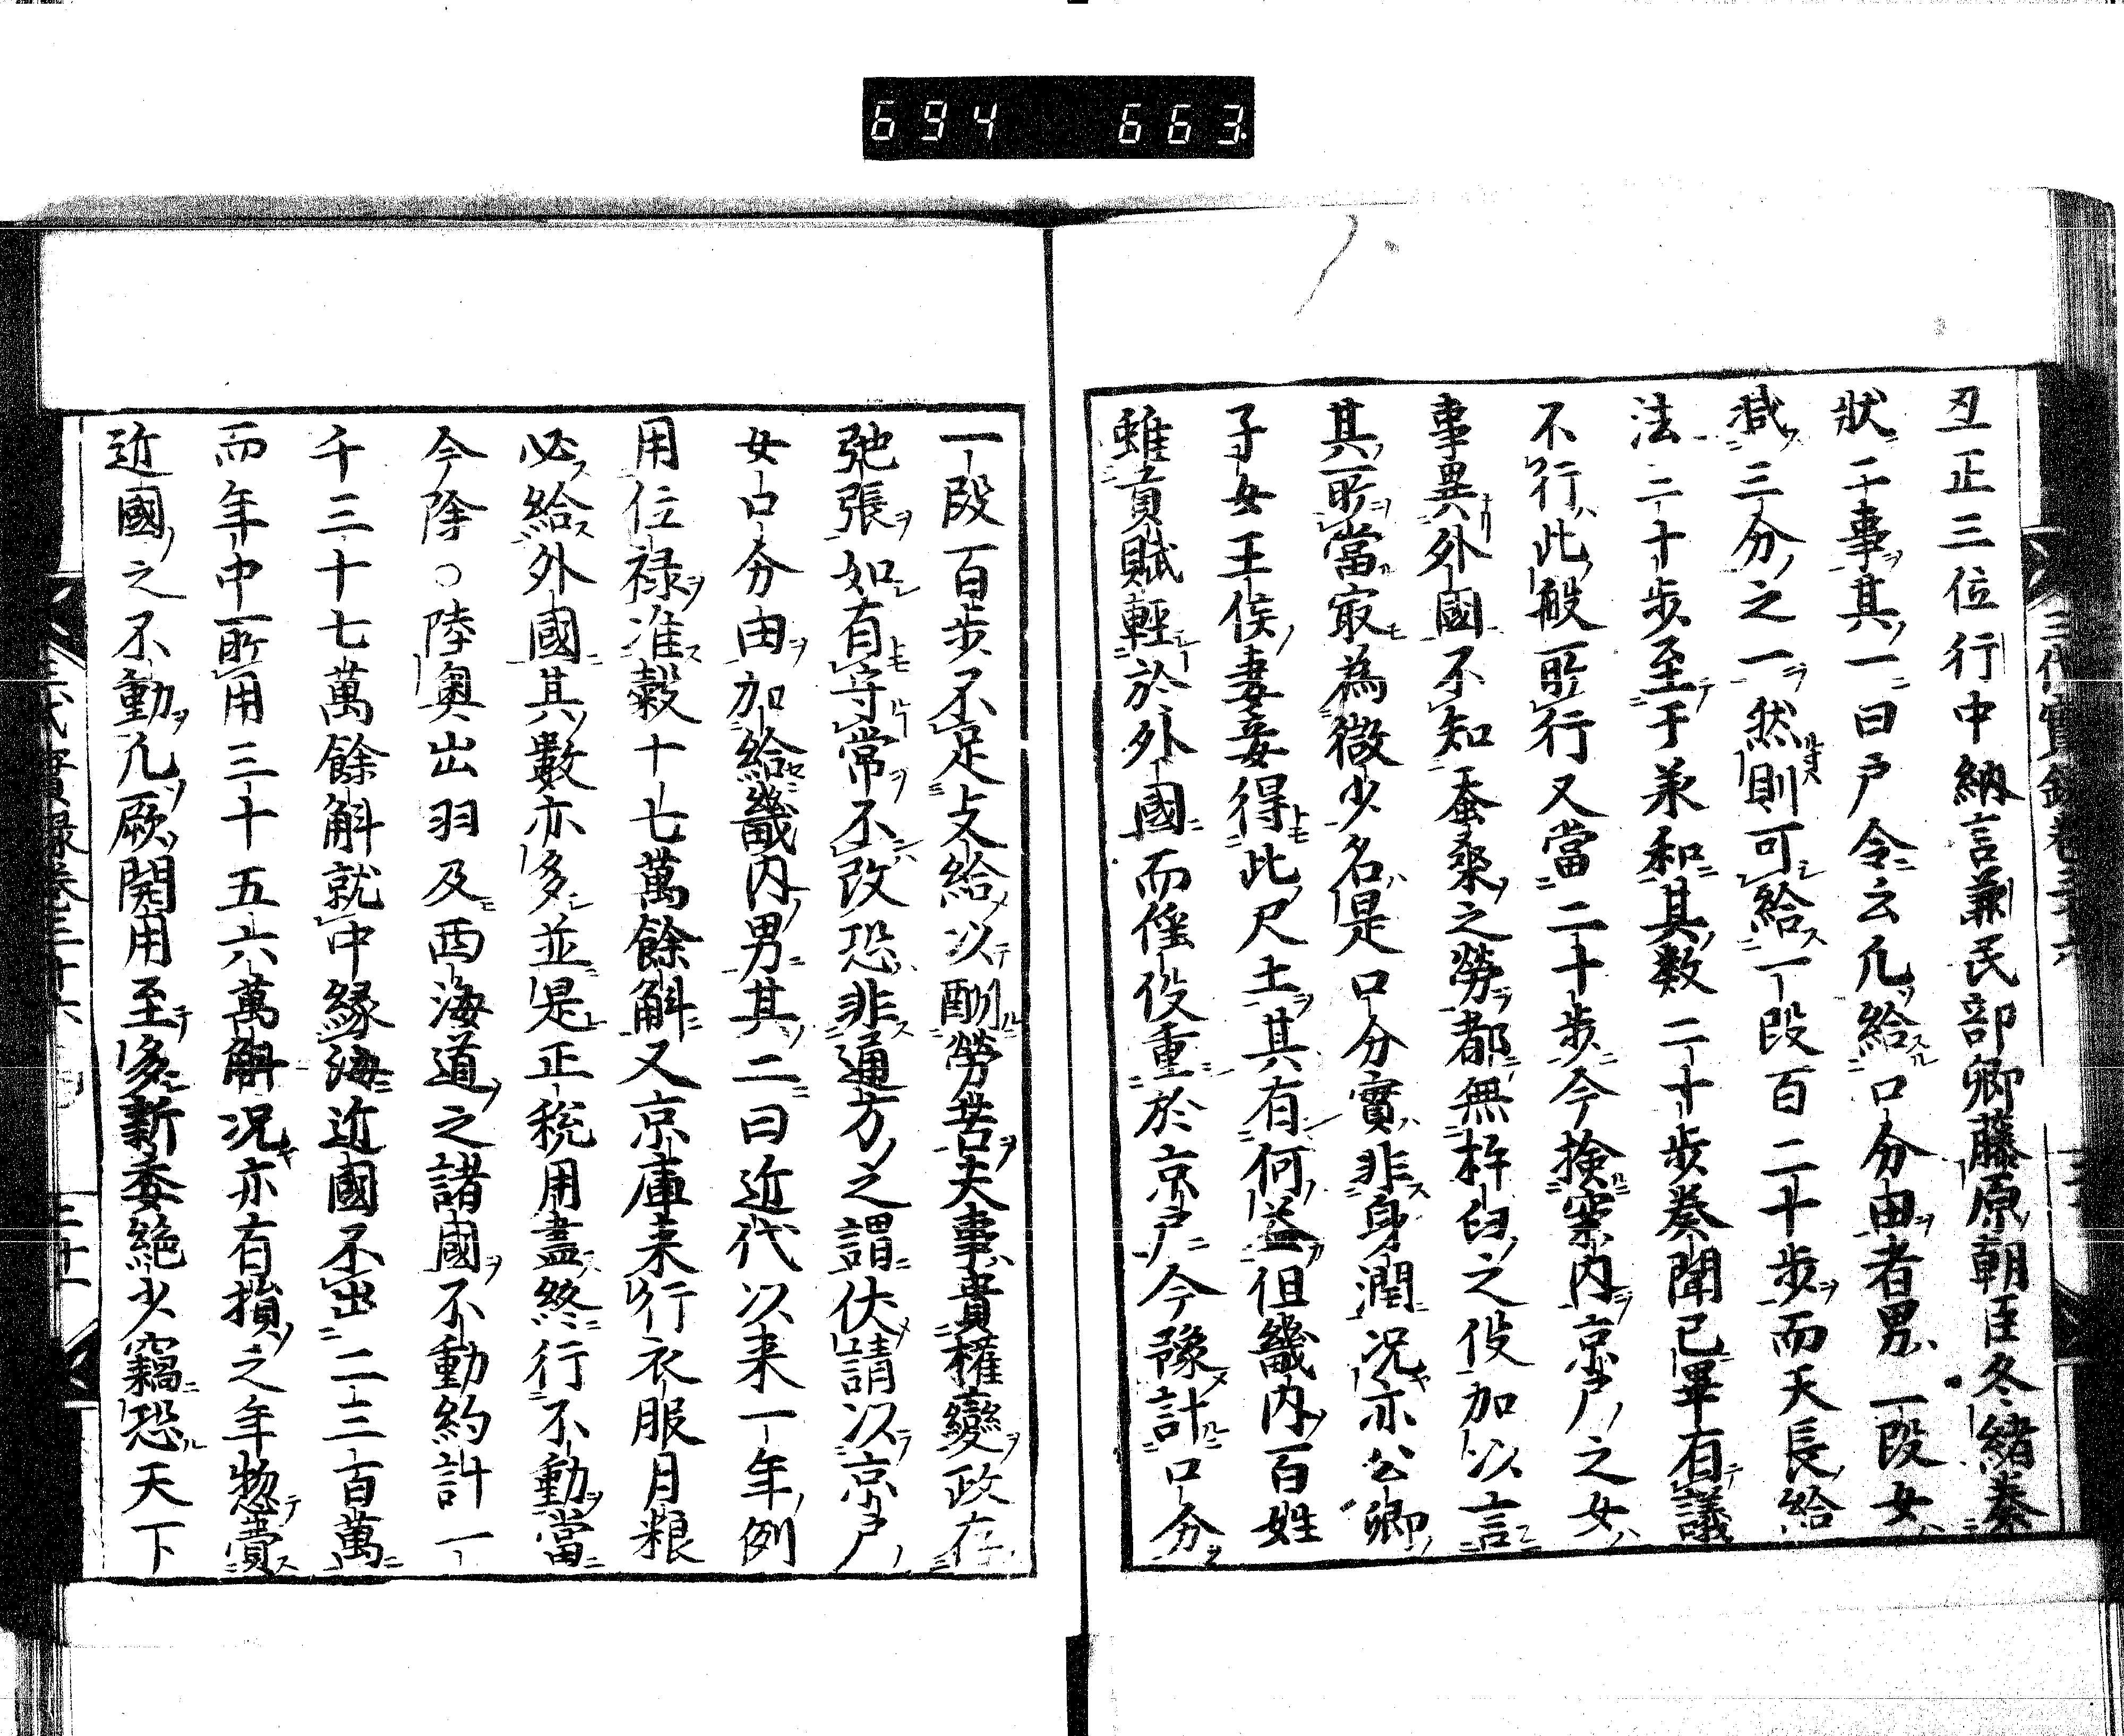 694 663
丑正三位行中納言兼民部卿藤原朝臣冬緒奏
狀二事其一曰戸令云凡給口分田者男一段女
減三分之一然則可給一段百二十步而天長給
法二十步至于承和其数二十步奏聞已畢有議
不行此般所行又當二十步今撿案内京戸之女
事異外國不知蚕桒之勞都無杵臼之役加以言
其所當寂為微少名是口分實非身潤况亦公卿
子女王侯妻妾得此尺土其有何益但畿内百姓
雖貢賦輕於外國而傜役重於京戸今豫計口分
一段百步不足攴給以酬勞苦夫事貴權變政在
弛張如有守常不改恐非通方之謂伏請以京戸
女口分由加給畿内男其二曰近代以来一年例
用位禄准穀十七萬餘斛又京庫未行衣服月粮
必給外國其數亦多並是正税用盡終行不動當
今除○陸奥出羽及西海道之諸國不動約計一
千三十七萬餘斛就中縁海近國不出二三百萬
而年中所用三十五六萬斛况亦有損之年惣賣
近國之不動凢厥開用至多新委絶少竊恐天下